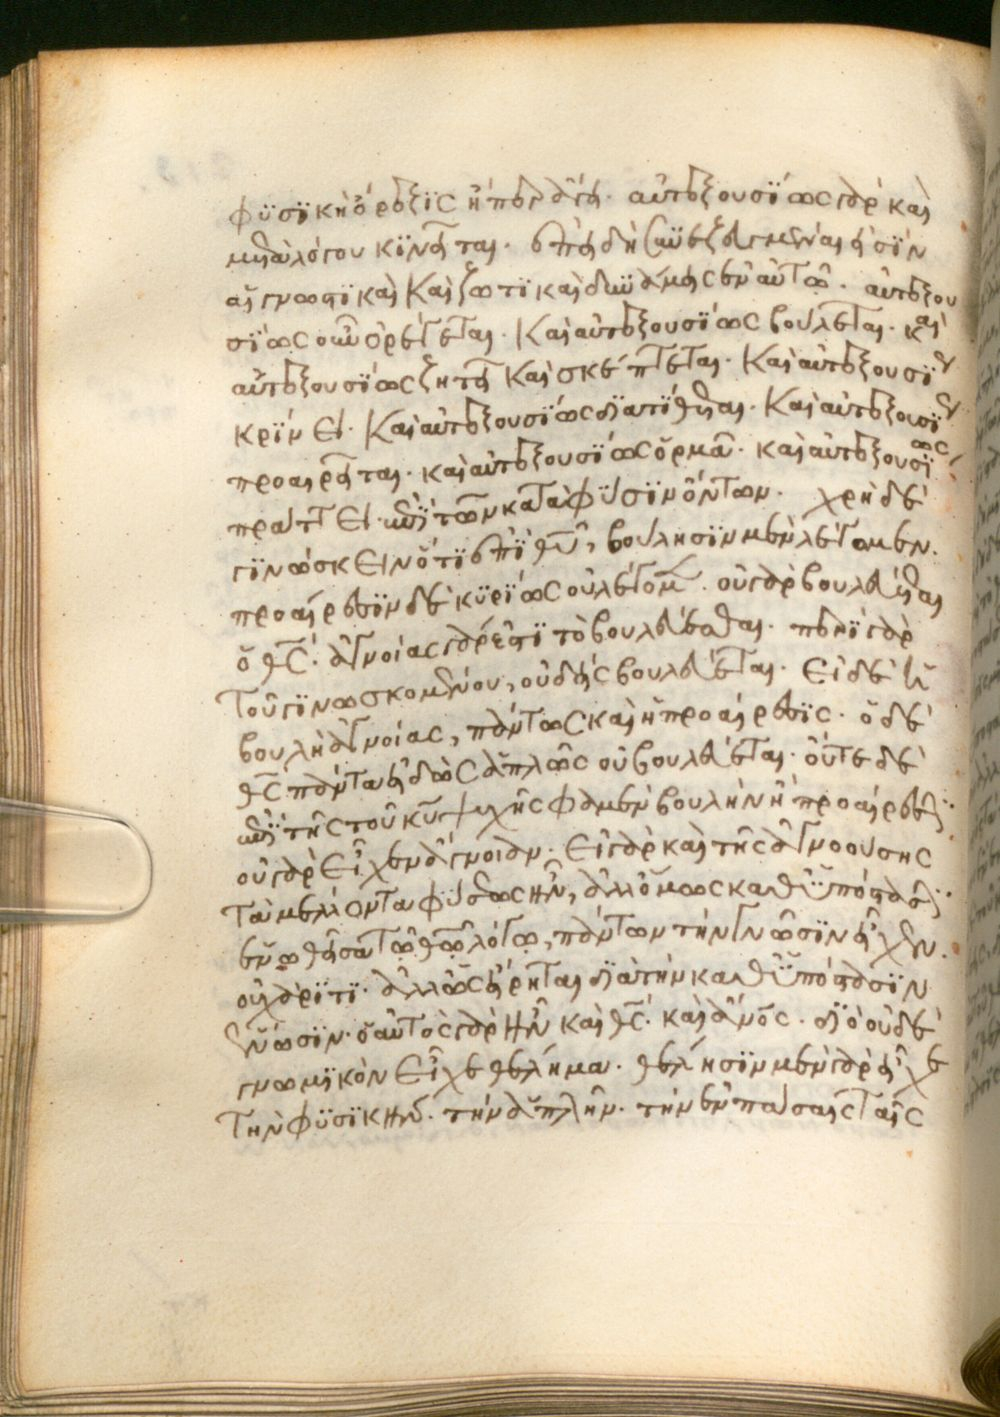 φϋσϊκὴ ὄρεξϊς ἤπερ ἄγει· αὐτεξουσϊως γὰρ καὶ
μετὰ λόγου κϊνεῖται· ἐπειδὴ συνεζευγμέναι εἰσϊν
αἱ γνωστϊκαὶ καὶ ζωτϊκαὶ δυνάμεις ἐν αὐτῶ· αὐτεξου
σϊως οὖν ὀρέγεται· καὶ αὐτεξουσϊως βούλεται· καὶ
αὐτεξουσϊως ζητεῖ καὶ σκέπτεται· καὶ αὐτεξουσϊως
κρϊνει· καὶ αὐτεξουσϊως δϊατϊθεται· καὶ αὐτεξουσϊως
προαιρεῖται· καὶ αὐτεξουσϊως ὁρμᾶ· καὶ αὐτεξουσϊως
πράττει· ἐπὶ τῶν κατὰ φϋσϊν ὄντων· χρὴ δὲ
γϊνώσκειν ὅτϊ ἐπϊ θῦ, βουλησϊν μὲν λέγομεν.
προαίρεσϊν δὲ κϋρϊως οὐ λέγομεν· οὐ γὰρ βουλεύεται
ὁ θς· ἀγνοίας γάρ ἐστϊ τὸ βουλεύεσθαι· περϊ γὰρ
τοῦ γϊνωσκομένου, οὐδεὶς βουλεύεται· εἰ δὲ ἡ
βουλὴ ἀγνοίας, πάντως καὶ ἡ προαίρεσϊς· ὁ δὲ
θς πάντα εἰδὼς ἁπλῶς οὐ βουλεύεται· οὔτε δὲ
ἐπϊ τῆς τοῦ κυ ψυχῆς φαμὲν βουλὴν ἢ προαίρεσϊν
οὐ γὰρ εἶχεν ἄγνοιαν· εἰ γὰρ καὶ τῆς ἀγνοούσης
τὰ μέλλοντα φϋσεως ἦν, ἀλλ' ὅμως καθ' ϋπόστασϊν
ἑνωθεῖσα τῶ θῶ λόγω, πάντων τὴν γνῶσϊν εἶχεν.
οὐ χάρϊτϊ· ἀλλ' ὡς εἴρηται δϊὰ τὴν καθ' ϋπόστασϊν
ἕνωσϊν· ὁ αὐτὸς γὰρ ἦν καὶ θς· καὶ ἄνος· δϊὸ οὐδὲ
γνωμϊκὸν εἶχε θέλημα· θέλησϊν μὲν γὰρ εἶχε
τὴν φϋσϊκήν· τὴν ἁπλῆν· τὴν ἐν πάσαις ταῖς